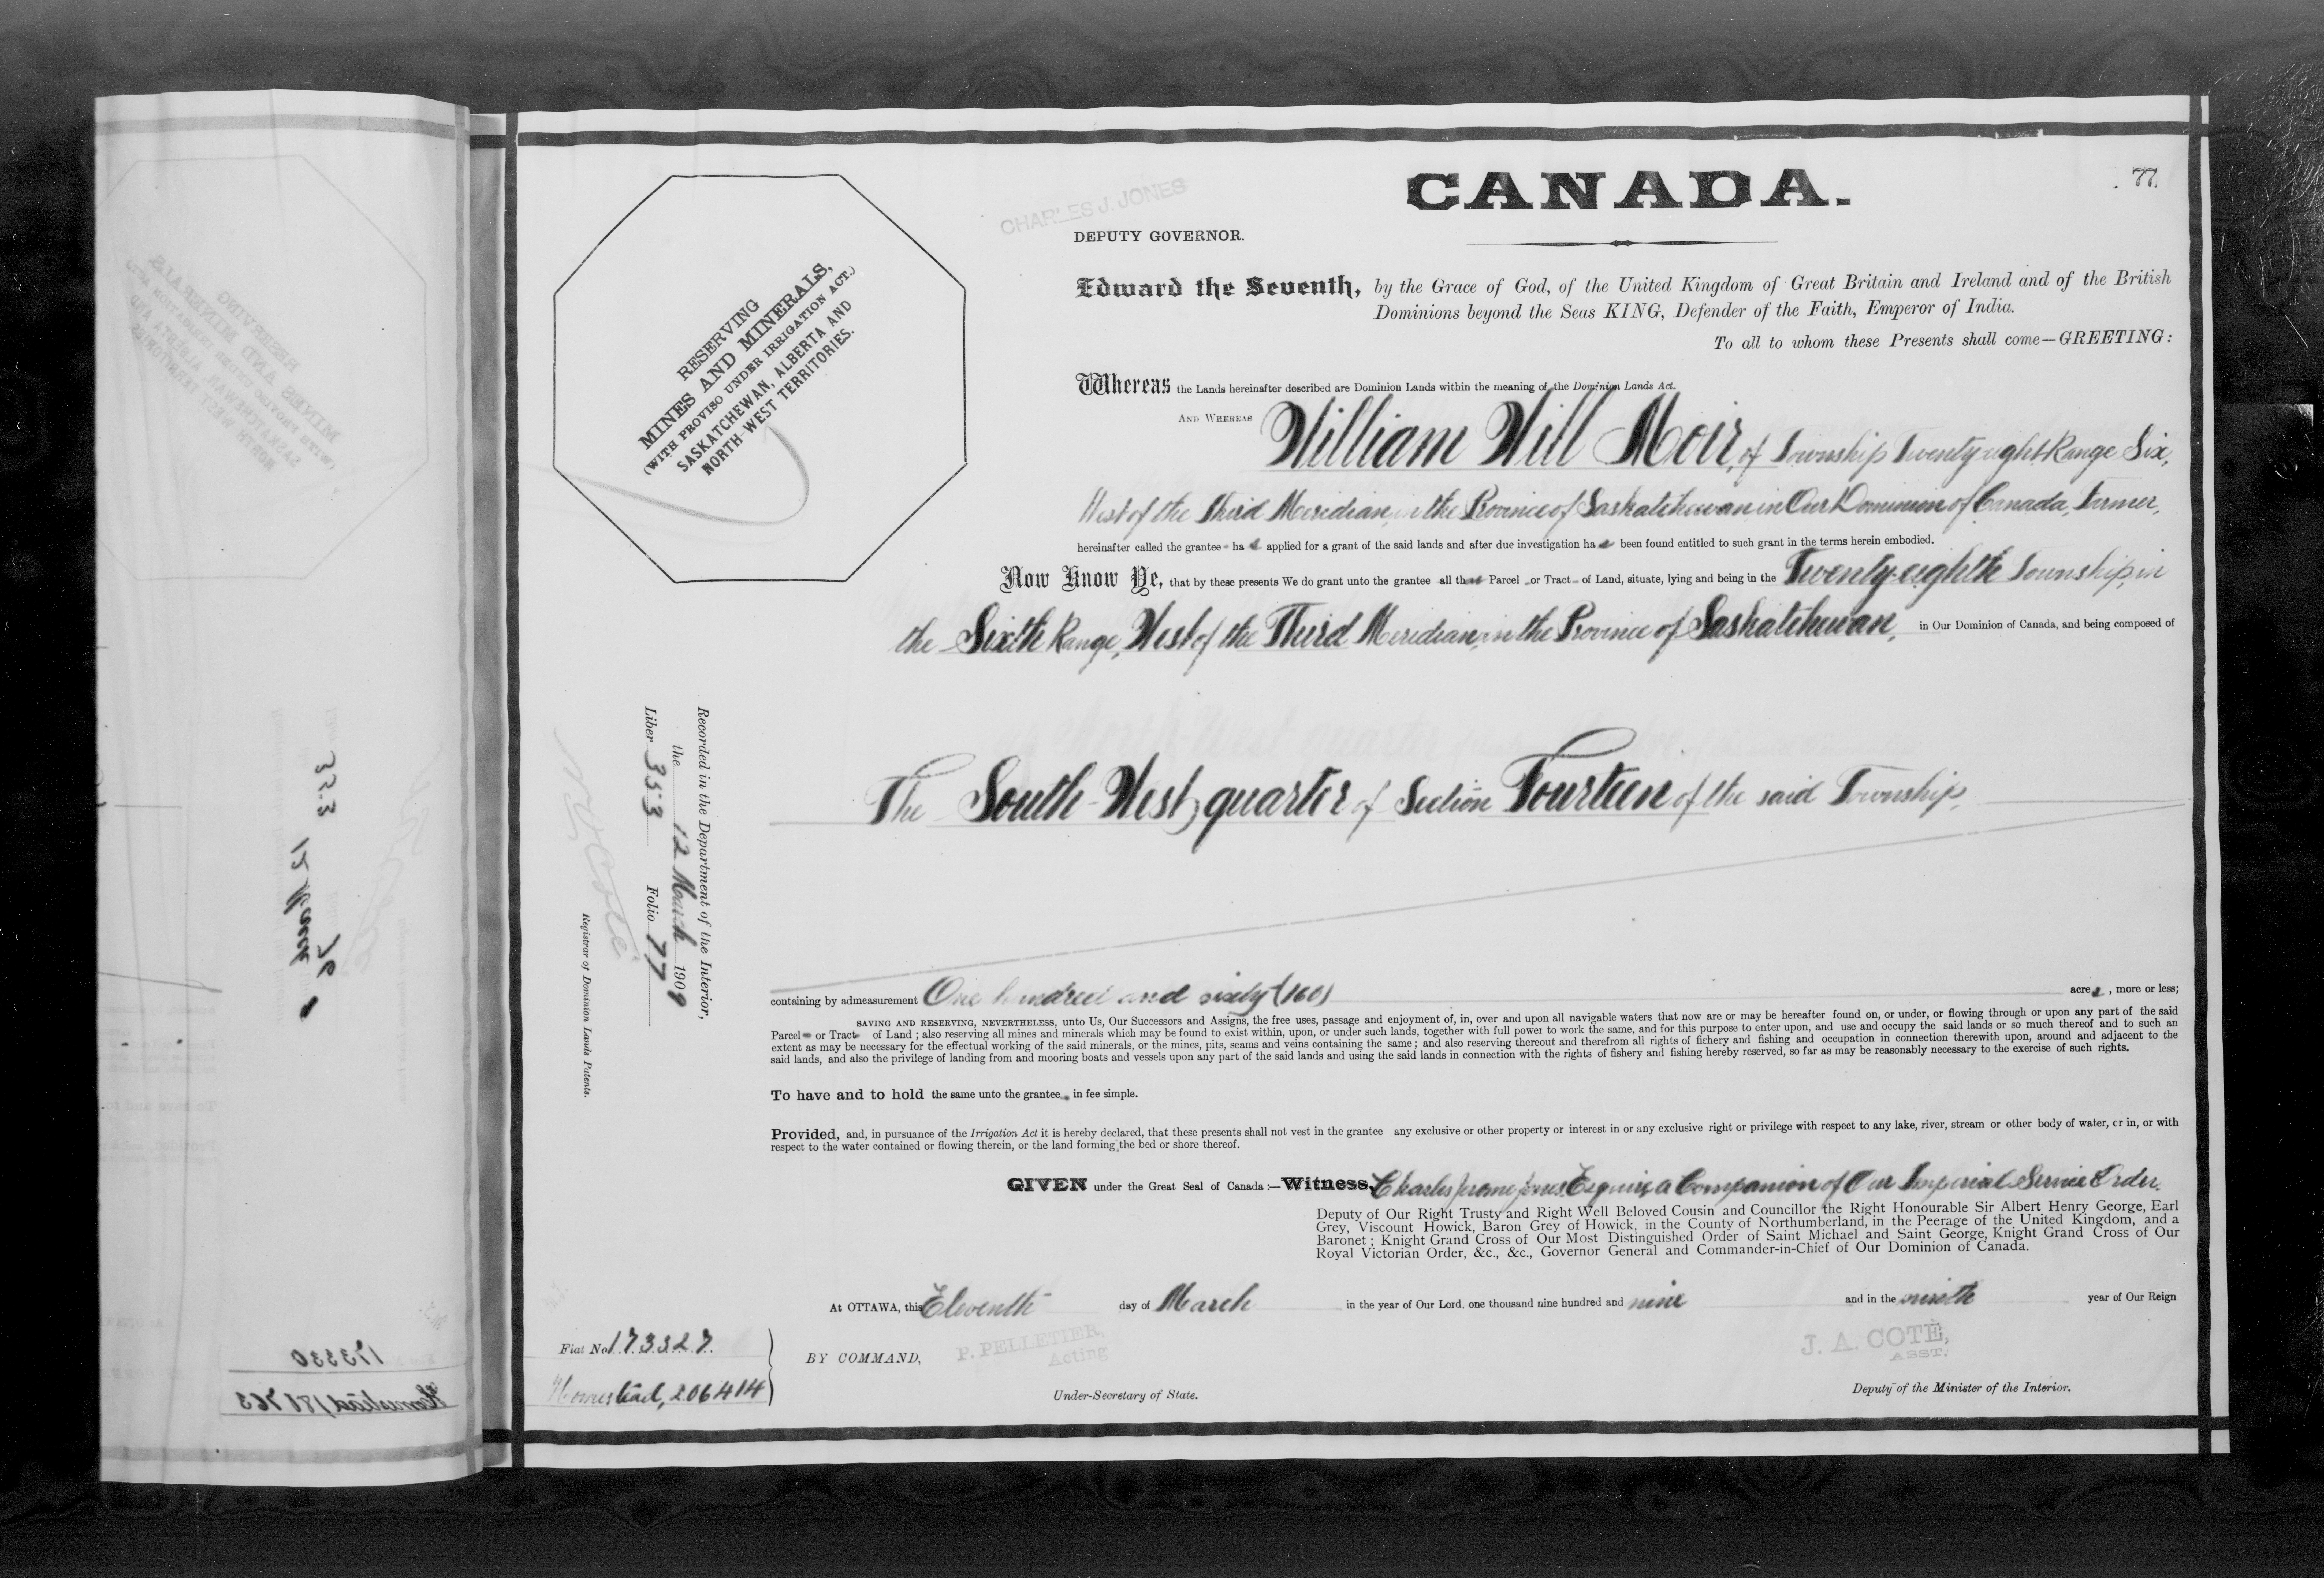 CANADA.
77.
CHARLES J. JONES
DEPUTY GOVERNOR.
Edward the Seventh, by the Grace of God, of the United Kingdom of Great Britain and Ireland and of the British
Dominions beyond the Seas KING, Defender of the Faith, Emperor of India.
To all to whom these Presents shall come—GREETING:
RESERVING
MINES AND MINERALS,
(WITH PROVISO UNDER IRRIGATION ACT.)
SASKATCHEWAN, ALBERTA AND
NORTH-WEST TERRITORIES.
Whereas the Lands hereinafter described are Dominion Lands within the meaning of the Dominion Lands Act.
AND WHEREAS William Will Moir, of Township Twenty-eight Range Six,
West of the Third Meridian, in the Province of Saskatchewan in Our Dominion of Canada, Farmer,
hereinafter called the grantee ha applied for a grant of the said lands and after due investigation ha been found entitled to such grant in the terms herein embodied.
Now Know Ye, that by these presents We do grant unto the grantee all that Parcel or Tract of Land, situate, lying and being in the Twenty-eighth Township, in
the Sixth Range, West of the Third Meridian, in the Province of Saskatchewan, in Our Dominion of Canada, and being composed of
The South-West quarter of Section Fourteen of the said Township,
Recorded in the Department of the Interior,
the 12 March 1909
Liber 353 Folio 77
N O Coté
Registrar of Dominion Lands Patents.
containing by admeasurement One hundred and sixty (160) acres, more or less;
SAVING AND RESERVING, NEVERTHELESS, unto Us, Our Successors and Assigns, the free uses, passage and enjoyment of, in, over and upon all navigable waters that now are or may be hereafter found on, or under, or flowing through or upon any part of the said
Parcel or Tract of Land; also reserving all mines and minerals which may be found to exist within, upon, or under such lands, together with full power to work the same, and for this purpose to enter upon, and use and occupy the said lands or so much thereof and to such an
extent as may be necessary for the effectual working of the said minerals, or the mines, pits, seams and veins containing the same; and also reserving thereout and therefrom all rights of fishery and fishing and occupation in connection therewith upon, around and adjacent to the
said lands, and also the privilege of landing from and mooring boats and vessels upon any part of the said lands and using the said lands in connection with the rights of fishery and fishing hereby reserved, so far as may be reasonably necessary to the exercise of such rights.
To have and to hold the same unto the grantee in fee simple.
Provided, and, in pursuance of the Irrigation Act it is hereby declared, that these presents shall not vest in the grantee any exclusive or other property or interest in or any exclusive right or privilege with respect to any lake, river, stream or other body of water, or in, or with
respect to the water contained or flowing therein, or the land forming the bed or shore thereof.
GIVEN under the Great Seal of Canada:—Witness, Charles Jerome Jones, Esquire, a Companion of Our Imperial Service Order,
Deputy of Our Right Trusty and Right Well Beloved Cousin and Councillor the Right Honourable Sir Albert Henry George, Earl
Grey, Viscount Howick, Baron Grey of Howick, in the County of Northumberland, in the Peerage of the United Kingdom, and a
Baronet; Knight Grand Cross of Our Most Distinguished Order of Saint Michael and Saint George, Knight Grand Cross of Our
Royal Victorian Order, &c., &c., Governor General and Commander-in-Chief of Our Dominion of Canada.
At OTTAWA, this Eleventh day of March in the year of Our Lord, one thousand nine hundred and nine and in the ninth year of Our Reign
Fiat No 173327.
Homestead, 206414
BY COMMAND,
P. PELLETIER,
Acting
Under-Secretary of State.
J. A. COTÉ,
ASST.
Deputy of the Minister of the Interior.
353
12 March
76
173330
Homestead 186763